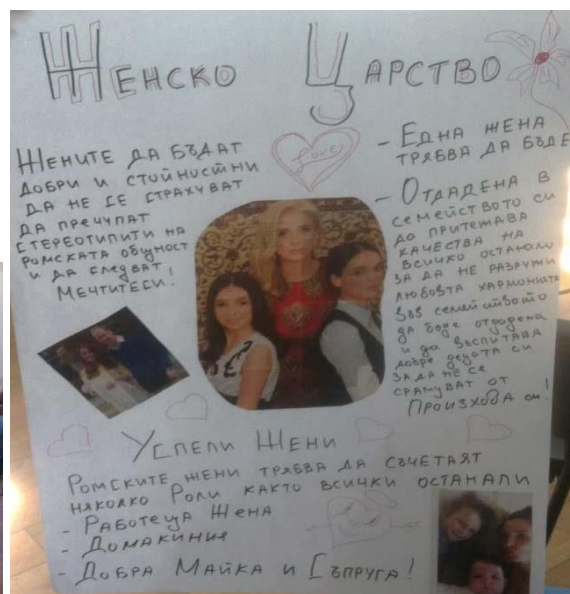 Женско Царство
Жените да бъдат
добри и стойностни
да не се страхуват
да пречупат
стереотипити на
ромската общност
и да следват!
Мечтитеси!
Love
- Една жена
трябва да бъде
- Отдадена в
семейството си
да притежава
качества на
всичко останало
за да не разруши
любовта хармонията
във семейството
да бъде отдадена
и да възпитава
добре децата си
за да не се
срамуват от
Произхода си!
Успели Жени
Ромските жени трябва да съчетаят
няколко Роли както всички останали
- Работеща Жена
- Домакиния
- Добра Майка и Съпруга!